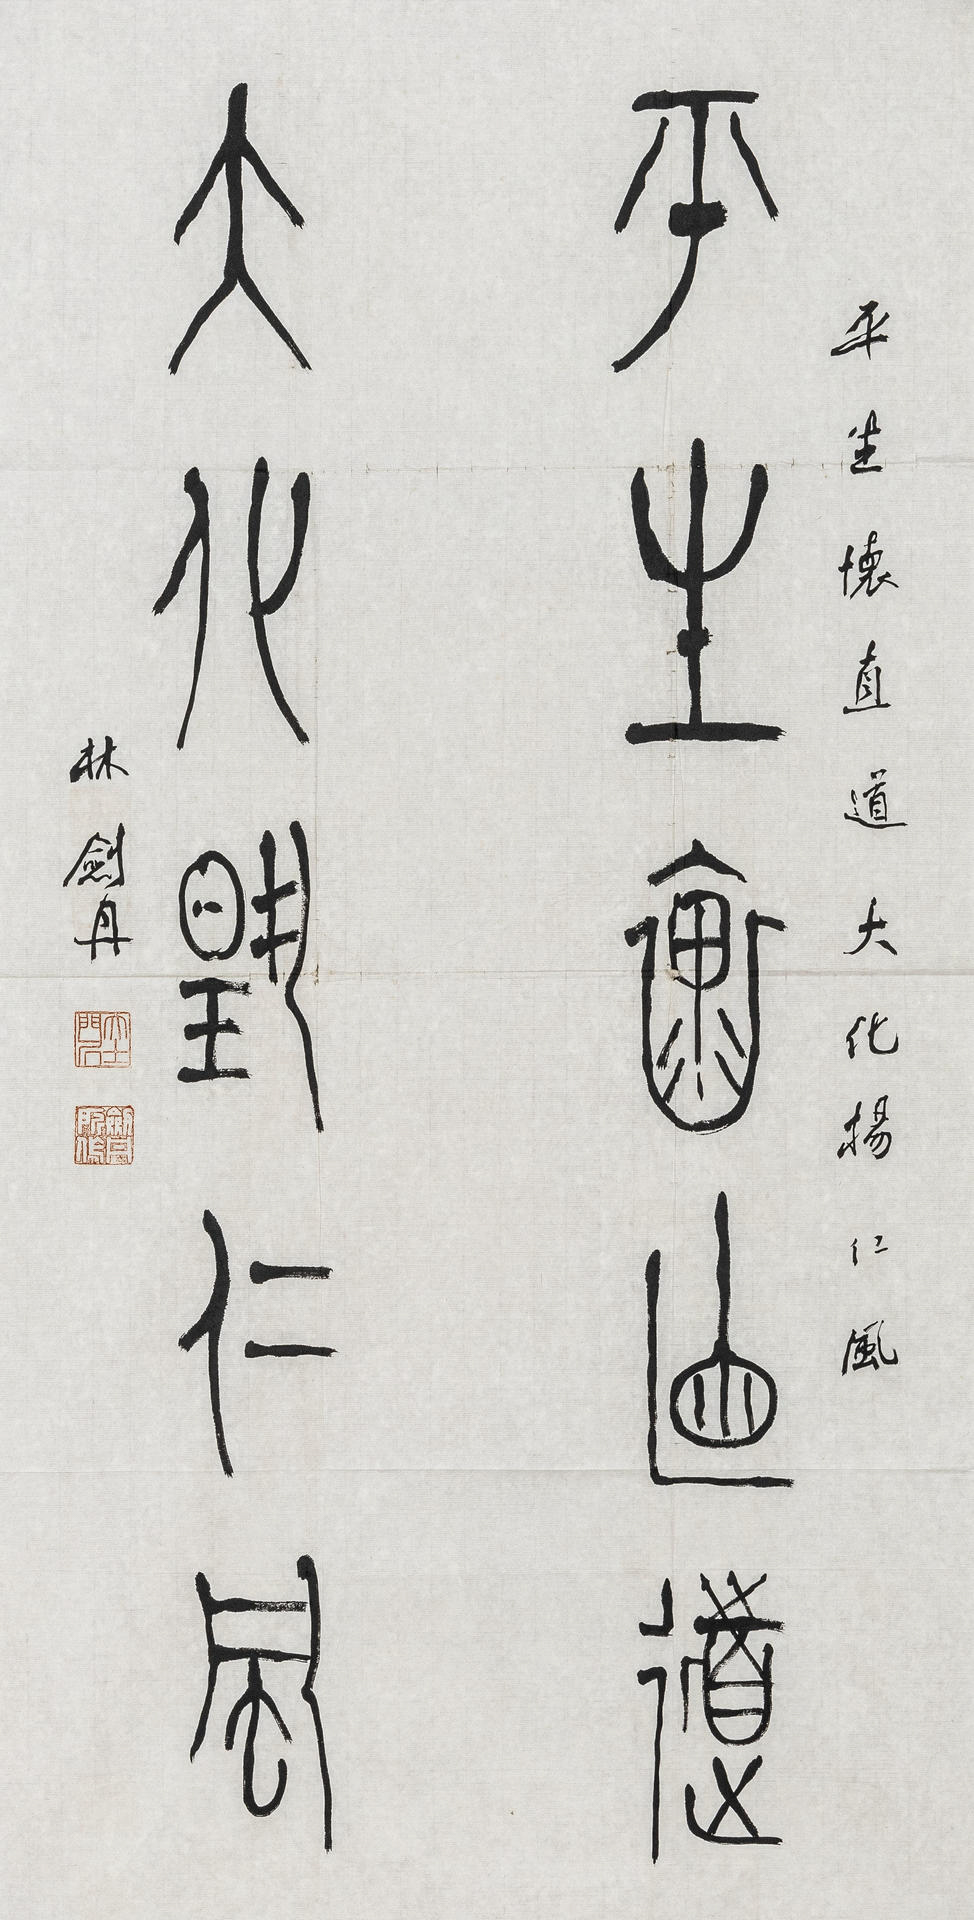 平生懷直道大化揚仁風
平生懷直道
大化揚仁風
林劍丹